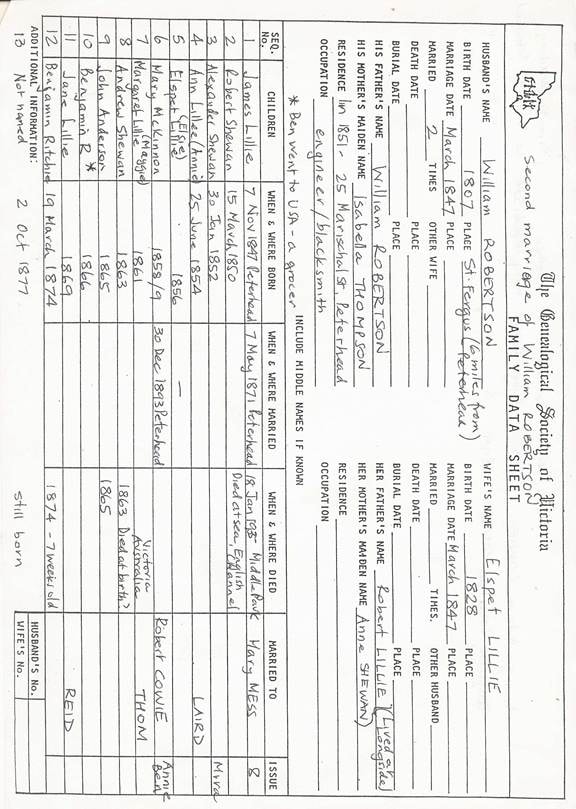 The Genealogical Society of Victoria
FAMILY DATA SHEET
Second marriage of William ROBERTSON
HUSBAND'S NAME William ROBERTSON
BIRTH DATE 1807 PLACE St. Fergus (6 miles from Peterhead)
MARRIAGE DATE March 1847 PLACE
MARRIED 2 TIMES OTHER WIFE
DEATH DATE PLACE
BURIAL DATE PLACE
HIS FATHER'S NAME William ROBERTSON
HIS MOTHER'S MAIDEN NAME Isabella THOMPSON
RESIDENCE In 1851 - 25 Marischal St, Peterhead
OCCUPATION engineer/blacksmith
WIFE'S NAME Elspet LILLIE
BIRTH DATE 1828 PLACE
MARRIAGE DATE March 1847 PLACE
MARRIED TIMES. OTHER HUSBAND
DEATH DATE PLACE
BURIAL DATE PLACE
HER FATHER'S NAME Robert LILLIE (Lived at Longside)
HER MOTHER'S MAIDEN NAME Anne SHEWAN
RESIDENCE
OCCUPATION
* Ben went to USA - a grocer
INCLUDE MIDDLE NAMES IF KNOWN
SEQ. No. CHILDREN WHEN & WHERE BORN WHEN & WHERE MARRIED WHEN & WHERE DIED MARRIED TO ISSUE
1 James Lillie 7 Nov 1847 Peterhead 7 May 1871 Peterhead 18 Jan Middle Park Mary MESS 8
2 Robert Shewan 15 March 1850 Died at sea, English Channel
3 Alexander Shewan 30 Jan 1852
4 Ann Lillee (Annie) 25 June 1854 LAIRD
5 Elspet (Elsie) Lillie 1856 —
6 Mary McKinnon 1858/9 30 Dec 1893 Peterhead Robert COWIE Annie Ben
7 Margaret Lillie (Maggie) 1861 Victoria Australia THOM
8 Andrew Shewan 1863 1863 Died at birth?
9 John Anderson 1865 1865
10 Benjamin R * 1866
11 Jane Lillie 1869 REID
12 Benjamin Ritchie 19 March 1874 1874 - 7 weeks old
ADDITIONAL INFORMATION:
13 Not named 2 Oct 1877 still born
HUSBAND'S No.
WIFE'S No.